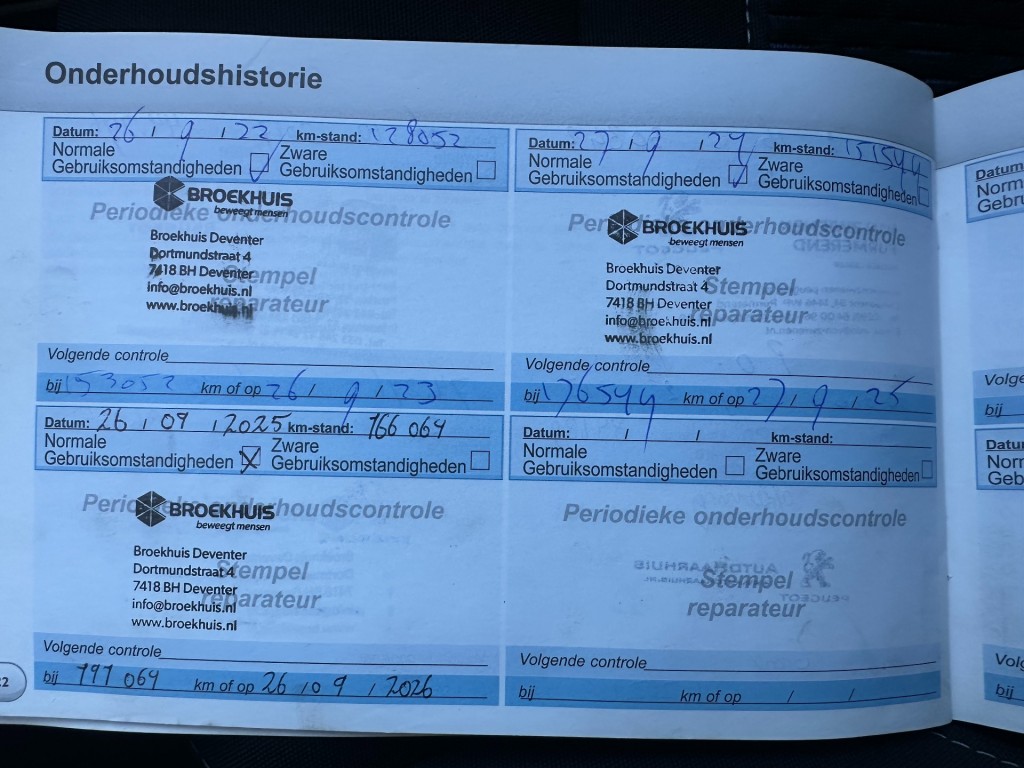 Onderhoudshistorie
Datum: 26 / 9 / 22 km-stand: 128052
Normale Gebruiksomstandigheden Zware Gebruiksomstandigheden
BROEKHUIS
beweegt mensen
Periodieke onderhoudscontrole
Broekhuis Deventer
Dortmundstraat 4
7418 BH Deventer
info@broekhuis.nl
www.broekhuis.nl
Stempel
reparateur
Volgende controle
bij 153052 km of op 26 / 9 / 23
Datum: 27 / 9 / 24 km-stand: 151544
Normale Gebruiksomstandigheden Zware Gebruiksomstandigheden
BROEKHUIS
beweegt mensen
Periodieke onderhoudscontrole
Broekhuis Deventer
Dortmundstraat 4
7418 BH Deventer
info@broekhuis.nl
www.broekhuis.nl
Stempel
reparateur
Volgende controle
bij 176544 km of op 27 / 9 / 25
Datum: 26 / 09 / 2025 km-stand: 166 064
Normale Gebruiksomstandigheden Zware Gebruiksomstandigheden
BROEKHUIS
beweegt mensen
Periodieke onderhoudscontrole
Broekhuis Deventer
Dortmundstraat 4
7418 BH Deventer
info@broekhuis.nl
www.broekhuis.nl
Stempel
reparateur
Volgende controle
bij 191 064 km of op 26 / 09 / 2026
Datum: / / km-stand:
Normale Gebruiksomstandigheden Zware Gebruiksomstandigheden
Periodieke onderhoudscontrole
Stempel
reparateur
Volgende controle
bij km of op / /
Datum
Norm
Gebru
Volge
bij
Datum:
Norn
Geb
Volg
bij